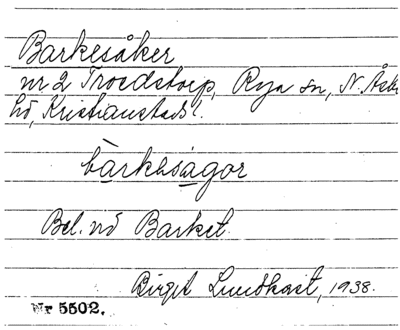 Barkesåker
nr 2 Troedstorp, Rya sn, N. Åsbo
hd, Kristianstads l.
bàrkəsagor
Bel. vid Barket.
Birgit Lundkvist, 1938.
Nr 5502.